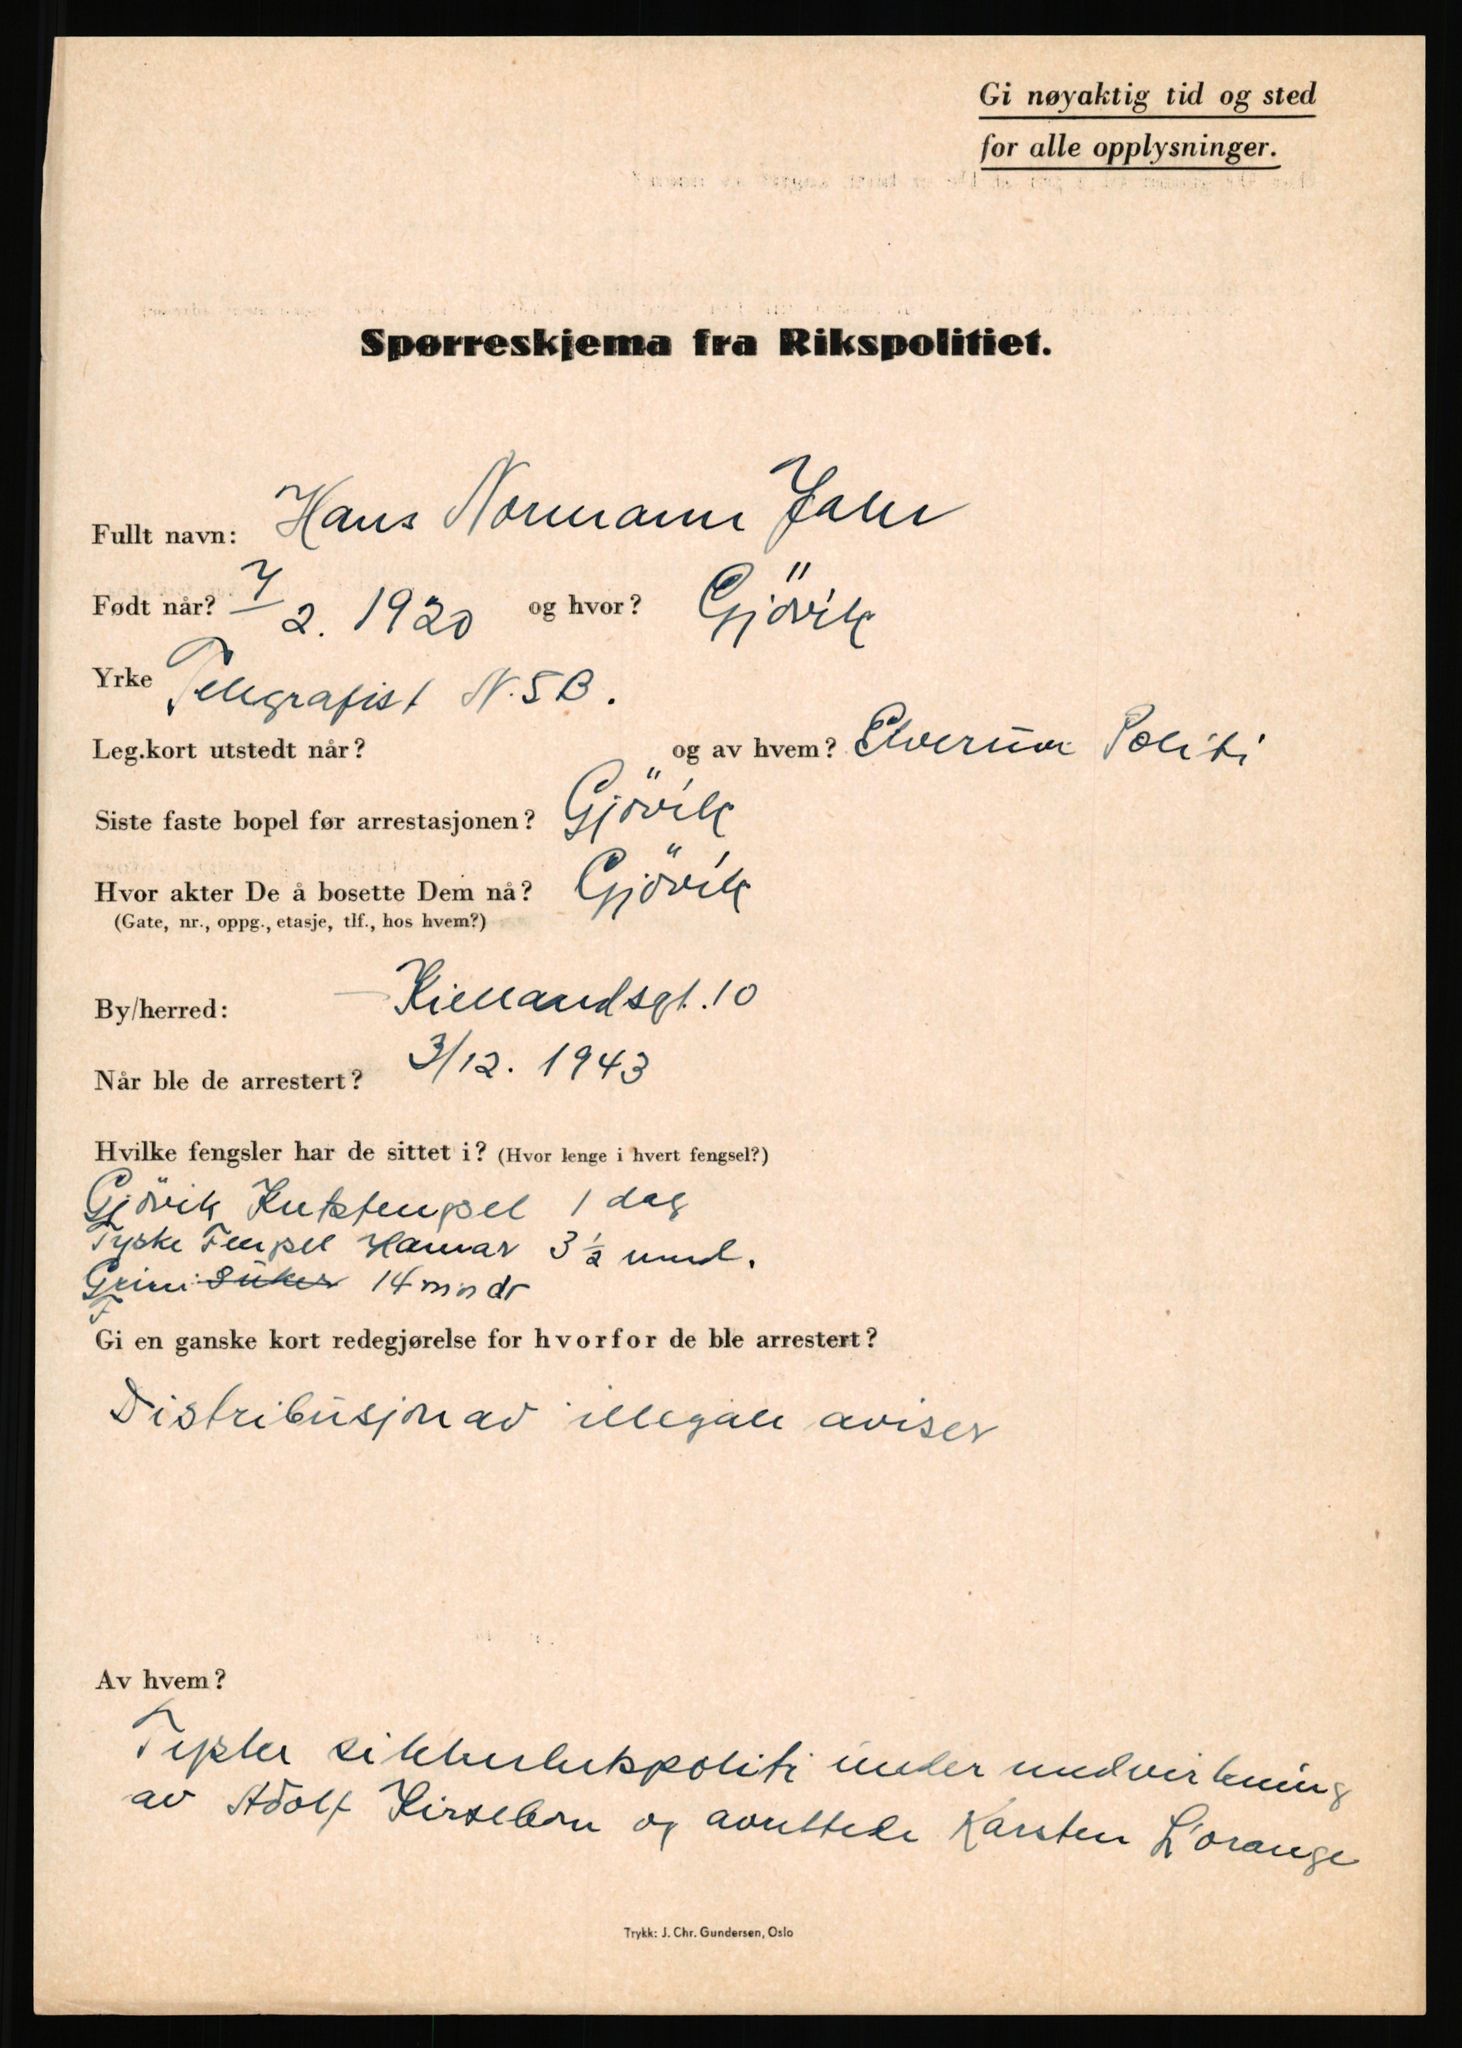 Gi nøyaktig tid og sted
for alle opplysninger.
Spørreskjema fra Rikspolitiet.
Fullt navn: Hans Normann Jahr
Født når? 7/2. 1920 og hvor? Gjövik
Yrke Telegrafist N.S.B.
Leg.kort utstedt når? og av hvem? Elverum Politi
Siste faste bopel før arrestasjonen? Gjövik
Hvor akter De å bosette Dem nå? Gjövik
(Gate, nr., oppg., etasje, tlf., hos hvem?)
By/herred: Kiellandsgt. 10
Når ble de arrestert? 3/12. 1943
Hvilke fengsler har de sittet i? (Hvor lenge i hvert fengsel?)
Gjövik Kretsfengsel 1 dag
Tyske Fengsel Hamar 3 ½ mnd.
Grini 14 mndr
Gi en ganske kort redegjørelse for hvorfor de ble arrestert?
Distribusjon av illegale aviser
Av hvem?
Tysker sikkerhetspoliti under medvirkning
av Adolf Kirsebom og avrettede Karsten L'orange
Trykk: J. Chr. Gundersen, Oslo